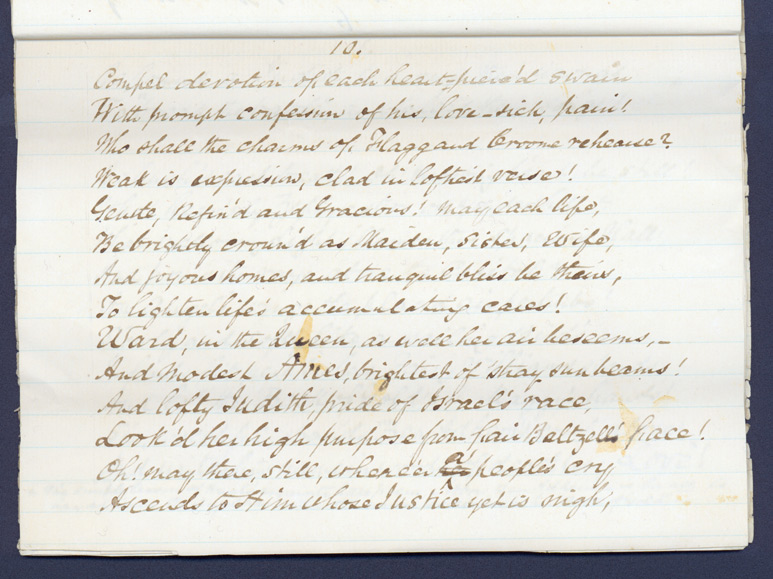 10.
Compel devotion of each heart-pierc'd swain
With prompt confession of his, love-sick, pain!
Who shall the charms of Flagg and Croome rehearse?
Weak is expression, clad in loftiest verse!
Gentle, Refin'd and Gracious! may each life,
Be brightly crown'd as Maiden, Sister, Wife,
And joyous homes, and tranquil bliss be theirs,
To lighten life's accumulating cares!
Ward, in the Queen, as well her air beseems,-
And modest Ames, brightest of stray sunbeams!
And lofty Judith, pride of Israel's race,
Look'd her high purpose from fair Beltzell's face!
Oh! may there, still, whene'er a people's cry
Ascends to Him whose Justice yet is nigh,